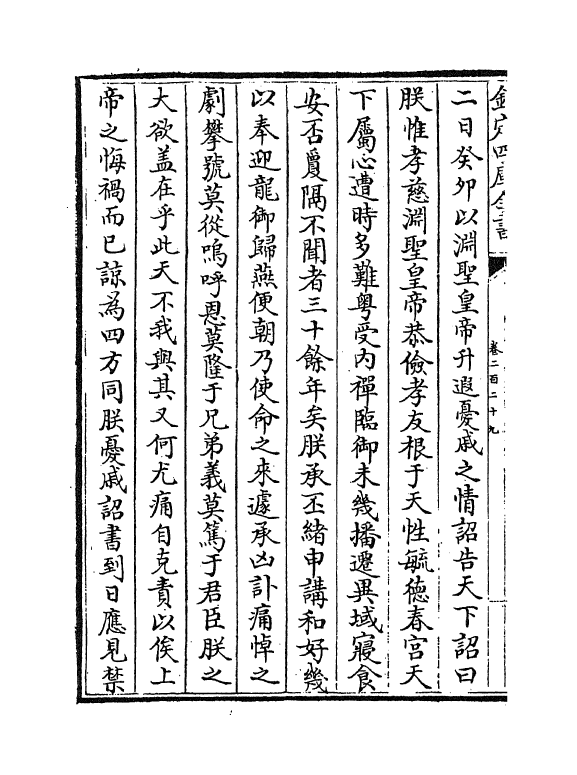 欽定四庫全書
卷二百二十九
二日癸卯以淵聖皇帝升遐憂戚之情詔告天下詔曰
朕惟孝慈淵聖皇帝恭儉孝友根于天性毓德春宮天
下屬心遭時多難粤受内禪臨御未幾播遷異域寢食
安否敻隔不聞者三十餘年矣朕承丕緒申講和好幾
以奉迎龍御歸燕便朝乃使命之來遽承凶訃痛悼之
劇攀號莫從嗚呼恩莫隆于兄弟義莫篤于君臣朕之
大欲盖在乎此天不我與其又何尤痛自克責以俟上
帝之悔禍而已諒為四方同朕憂戚詔書到日應見禁